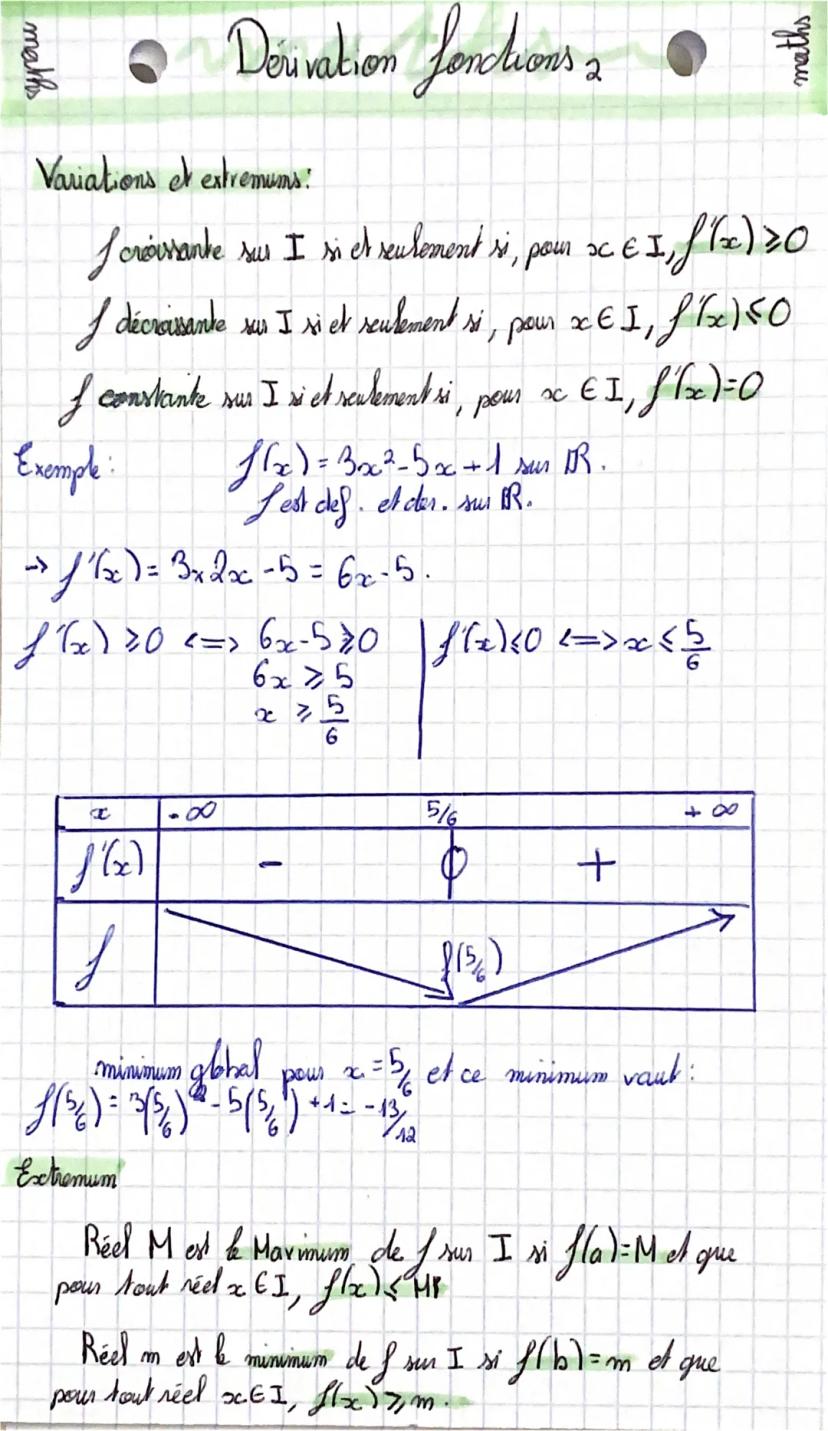 maths
Dérivation fonctions 2
maths
Variations et extremums:
f croissante sur I si et seulement si, pour x ∈ I, f'(x) ⩾ 0
f décroissante sur I si et seulement si, pour x ∈ I, f'(x) ⩽ 0
f constante sur I si et seulement si, pour x ∈ I, f'(x) = 0
Exemple: f(x) = 3x² - 5x + 1 sur ℝ.
f est def. et der. sur ℝ.
→ f'(x) = 3 × 2x - 5 = 6x - 5.
f'(x) ⩾ 0 <=> 6x - 5 ⩾ 0 | f'(x) ⩽ 0 <=> x ⩽ 5/6
6x ⩾ 5
x ⩾ 5/6
x -∞ 5/6 +∞
f'(x) - 0 +
f f(5/6)
minimum global pour x = 5/6 et ce minimum vaut:
f(5/6) = 3(5/6)² - 5(5/6) + 1 = -13/12
Extremum
Réel M est le Maximum de f sur I si f(a) = M et que
pour tout réel x ∈ I, f(x) ⩽ M
Réel m est le minimum de f sur I si f(b) = m et que
pour tout réel x ∈ I, f(x) ⩾ m.